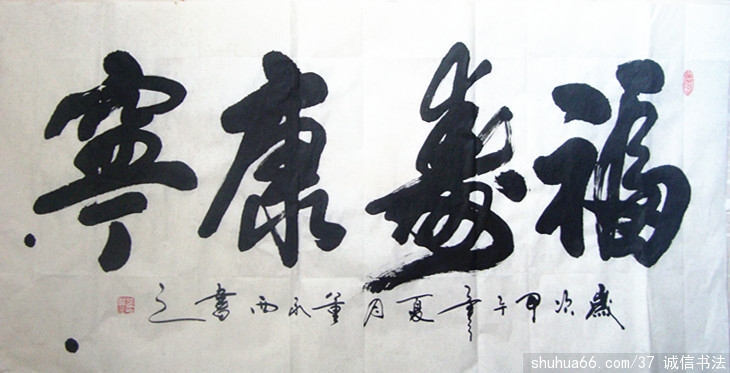 福壽康寧
歲次甲午年夏月董永西書之
shuhua66.com/37 诚信书法